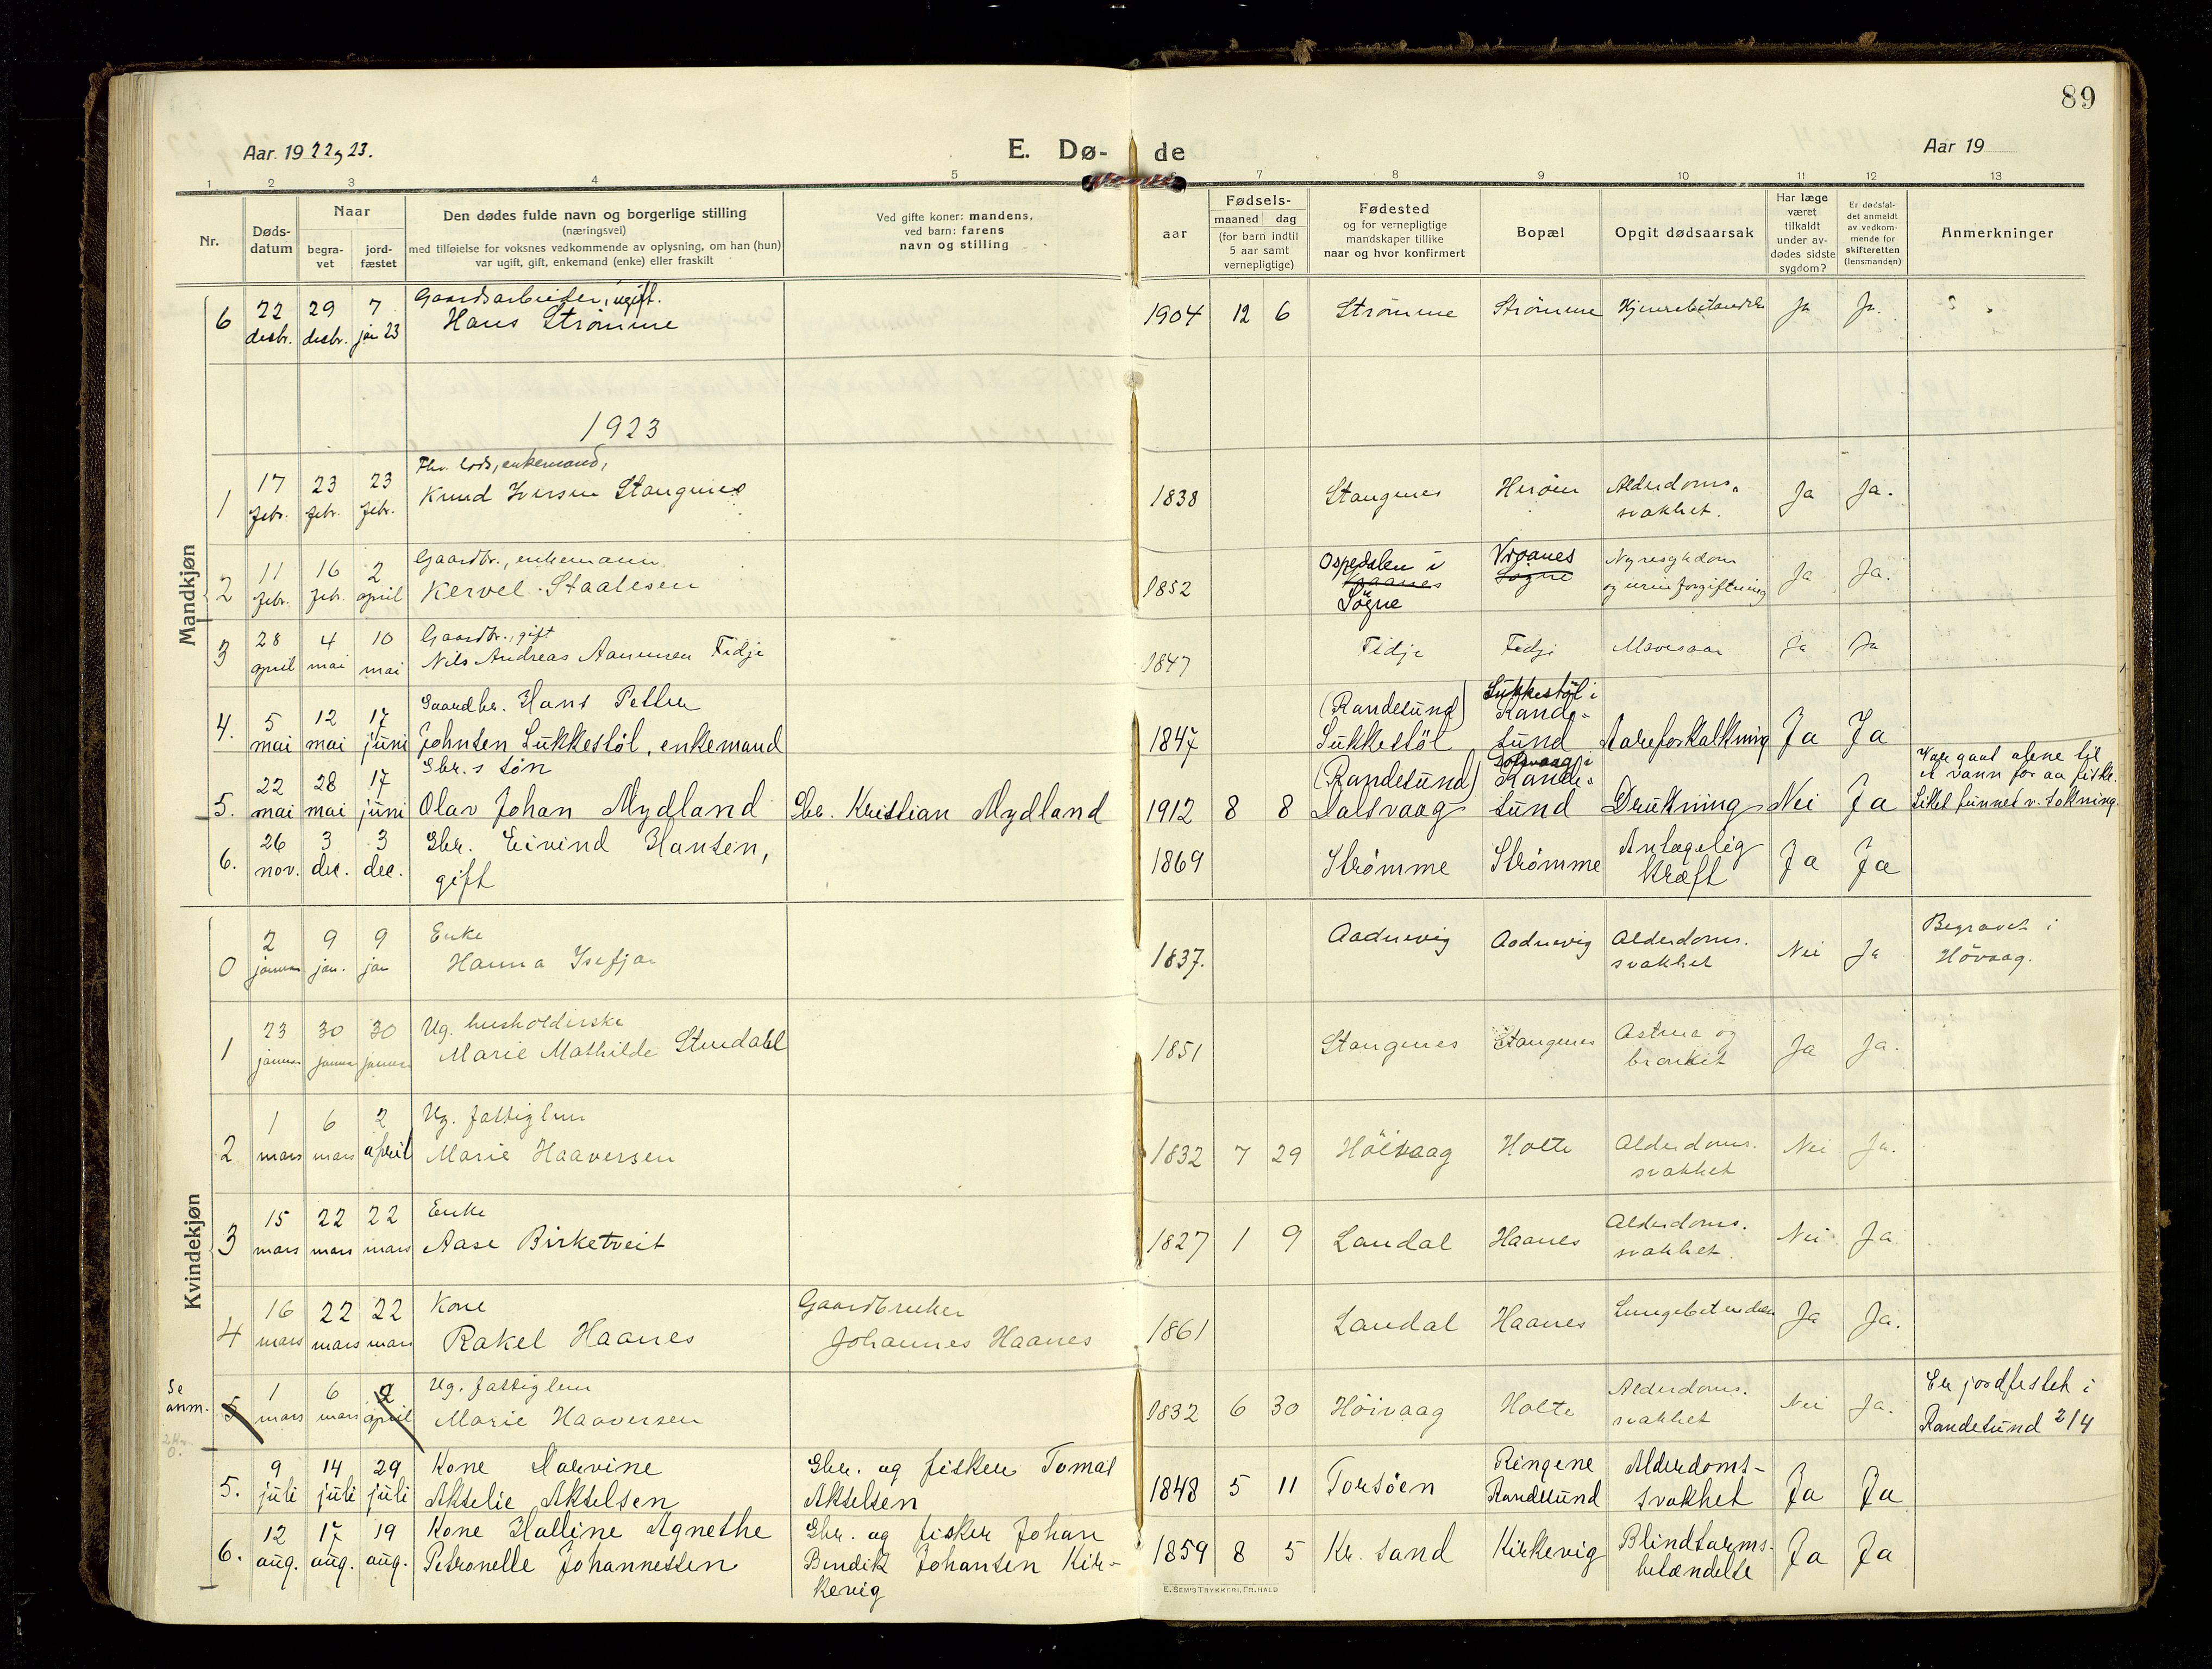 89
Aar. 19 22 og 23.
E. Dø- de
Aar 19
1 2 3 4 5 7 8 9 10 11 12 13
Nr.
Døds-
datum
Naar
begra-
vet
jord-
fæstet
Den dødes fulde navn og borgerlige stilling
(næringsvei)
med tilføielse for voksnes vedkommende av oplysning, om han (hun)
var ugift, gift, enkemand (enke) eller fraskilt
Ved gifte koner: mandens,
ved barn: farens
navn og stilling
Fødsels-
aar
maaned dag
(for barn indtil
5 aar samt
vernepligtige)
Fødested
og for vernepligtige
mandskaper tillike
naar og hvor konfirmert
Bopæl
Opgit dødsaarsak
Har læge
været
tilkaldt
under av-
dødes sidste
sygdom?
Er dødsfal-
det anmeldt
av vedkom-
mende for
skifteretten
(lensmanden)
Anmerkninger
Mandkjøn
6 22 desbr. 29 desbr. 7 jan 23 Gaardsarbeider, ugift.
Hans Strømme 1904 12 6 Strømme Strømme Ja Ja.
1923
1 17 febr. 23 febr. 23 febr. Fhv. lods, enkemand,
Knud Iversen Stangenes 1838 Stangenes Herøen Alderdoms-
svakhet. Ja Ja.
2 11 febr. 16 febr. 2 april Gaardbr., enkemann
Kervel Staalesen 1852 Ospedalen i
Vraanes
Søgne
Vraanes
Søgne
Nyresykdom
og urinforgiftning Ja Ja.
3 28 april 4 mai 10 mai Gaardbr., gift
Nils Andreas Aanensen Fidje 1847 Fidje Fidje Mavesaar Ja Ja
4. 5 mai 12 mai 17 juni Gaardbr. Hans Petter
Johnsen Sukkestøl, enkemand 1847 (Randesund)
Sukkestøl
Sukkestøl i
Rande-
sund Aareforkalkning Ja Ja
5. 22 mai 28 mai 17 juni Gbr.s søn
Olav Johan Mydland Gbr. Kristian Mydland 1912 8 8 (Randesund)
Dalsvaag
Dolsvaag i
Rande-
sund Drukning Nei Ja
Var gaat alene til
et vann for aa fiske.
Liket funnet v. sokning.
6. 26 nov. 3 dec. 3 dec. Gbr. Eivind Hansen,
gift 1869 Strømme Strømme Antagelig
kræft Ja Ja
Kvindekjøn
0 2 januar 9 jan. 9 jan Enke
Hanna Isefjær 1837. Aadnevig Aadnevig Alderdoms.
svakhet Nei Ja Begravet i
Høvaag.
1 23 januar 30 januar 30 januar Ug. husholderske
Marie Mathilde Stendahl 1851 Stangenes Stangenes Astma og
bronkit Ja Ja.
2 1 mars 6 mars 2 april Ug. fattiglem
Marie Haaversen 1832 7 29 Høivaag Holte Alderdoms.
svakhet Nei Ja.
3 15 mars 22 mars 22 mars Enke
Aase Birketveit 1827 1 9 Landal Haanes Alderdoms.
svakhet. Nei Ja
4 16 mars 22 mars 22 mars Kone
Rakel Haanes
Gaardbruker
Johannes Haanes 1861 Laudal Haanes Lungebetendelse Ja Ja.
Se
anm.
5 1 mars 6 mars 2 april Ug. fattiglem
Marie Haaversen 1832 6 30 Høivaag Holte Alderdoms.
svakhet Nei Ja. Er jordfestet i
Randesund 2/4
5. 9 juli 14 juli 29 juli Kone
Akselie Akselsen
Gbr. og fisker Tomas
Akselsen 1848 5 11 Torsøen Ringene
Randesund Alderdoms-
svakhet Ja Ja
6. 12 aug. 17 aug. 19 aug. Kone Halline Agnethe
Petronelle Johannessen
Gbr. og fisker Johan
Bendik Johansen Kir-
kevig 1859 8 5 Kr. sand Kirkevig Blindtarms-
betændelse Ja Ja
E. SEM'S TRYKKERI, FR.HALD